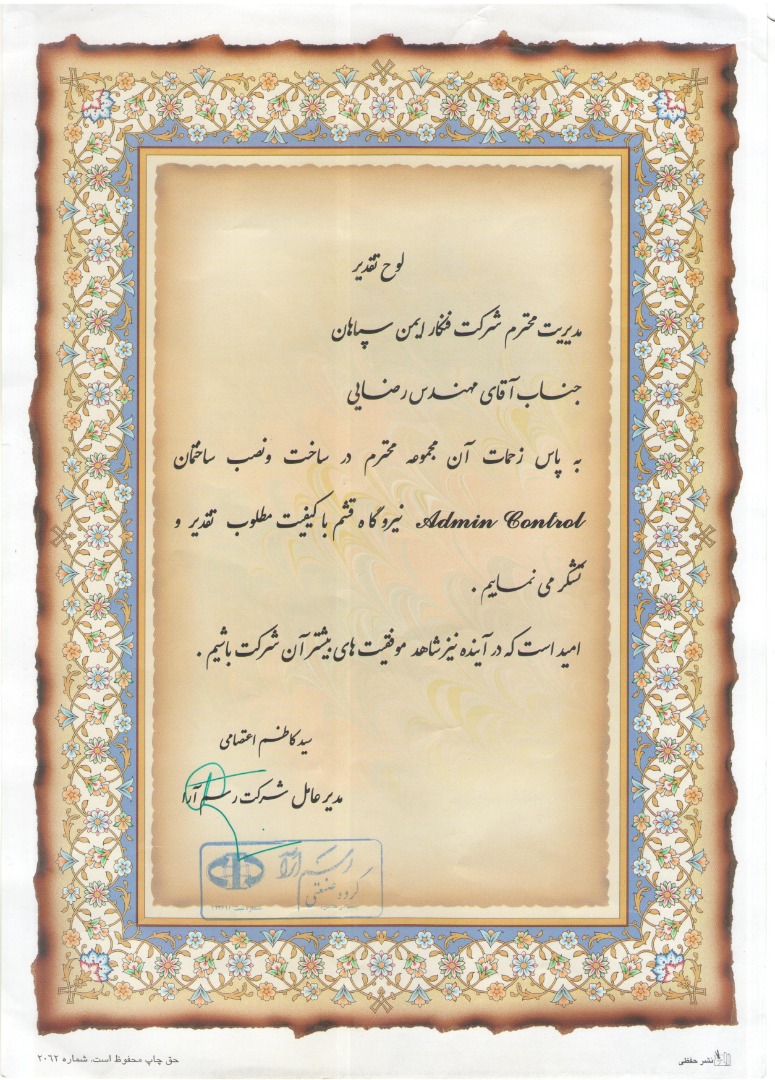 لوح تقدیر
مدیریت محترم شرکت فنکار ایمن سپاهان
جناب آقای مهندس رضایی
به پاس زحمات آن مجموعه محترم در ساخت ونصب ساختمان
Admin Control نیروگاه قشم با کیفیت مطلوب تقدیر و
تشکر می نماییم .
امید است که در آینده نیز شاهد موفقیت های بیشتر آن شرکت باشیم .
سید کاظم اعتصامی
مدیر عامل شرکت رسم آرا
رسم آرا
گروه صنعتی
نشر حفظی
حق چاپ محفوظ است. شماره ۲۰۶۲